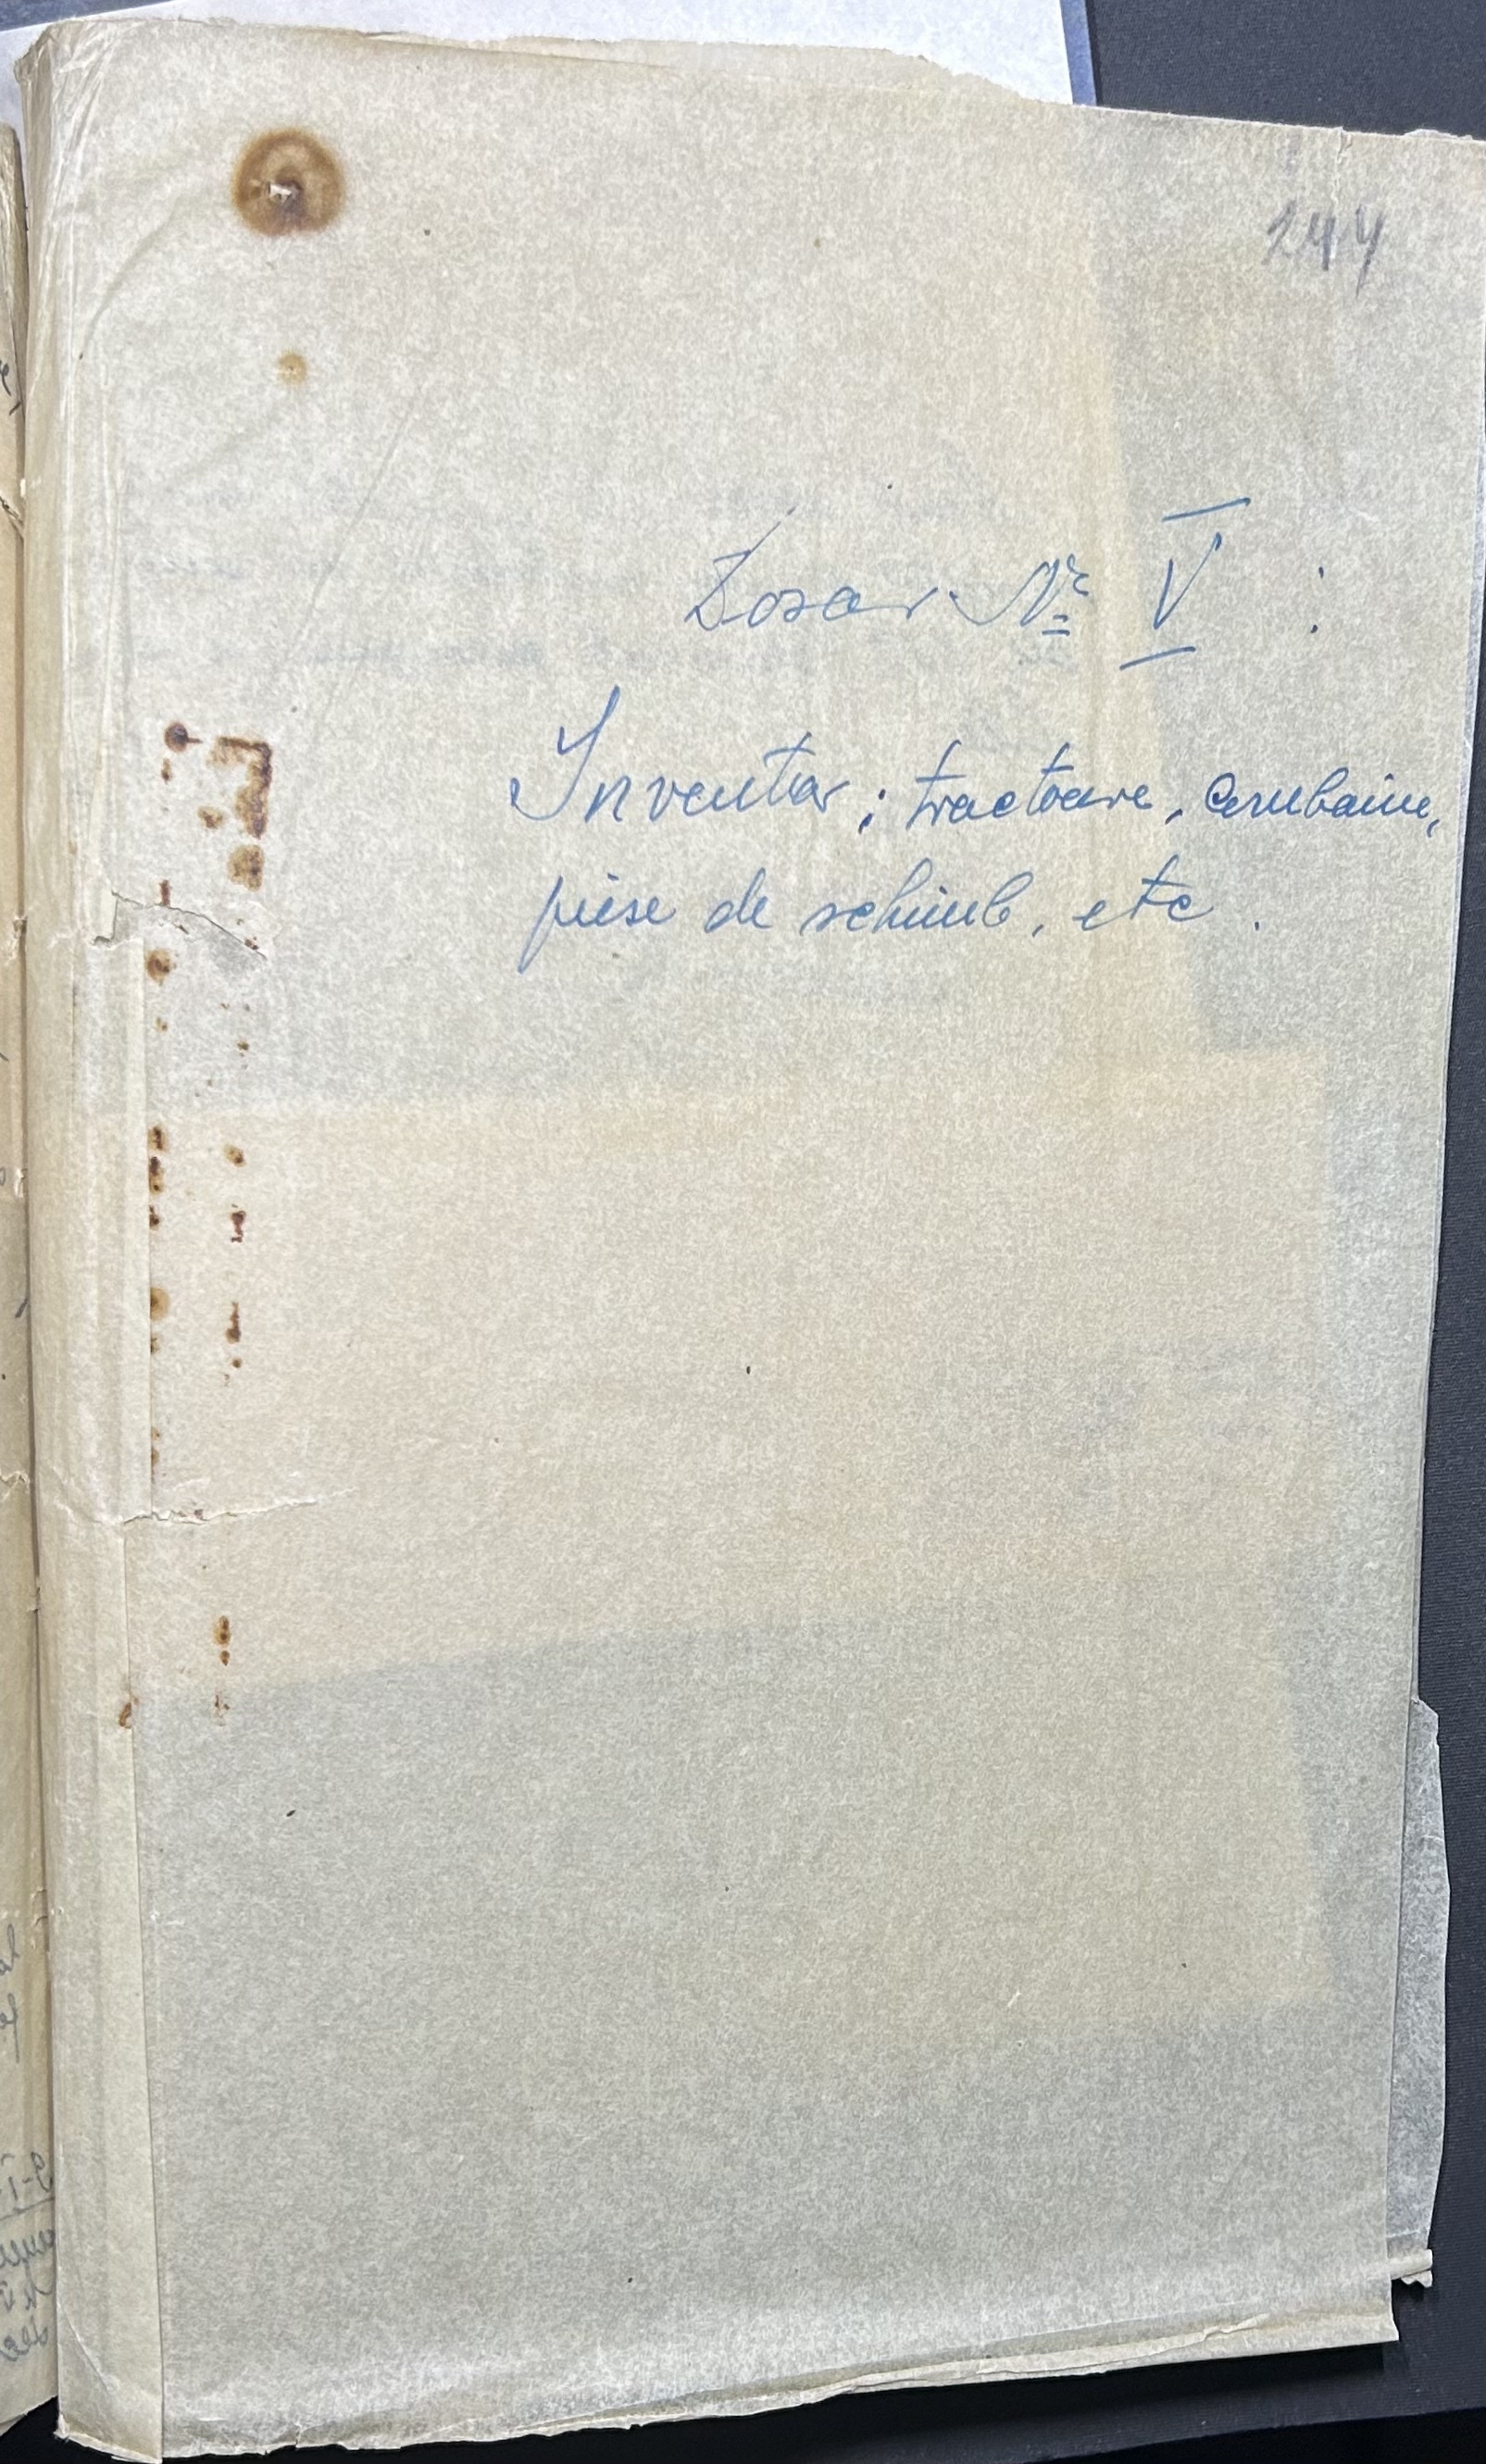 244
Dosar Nr V :
Inventar ; tractoare, combaine,
piese de schimb, etc.